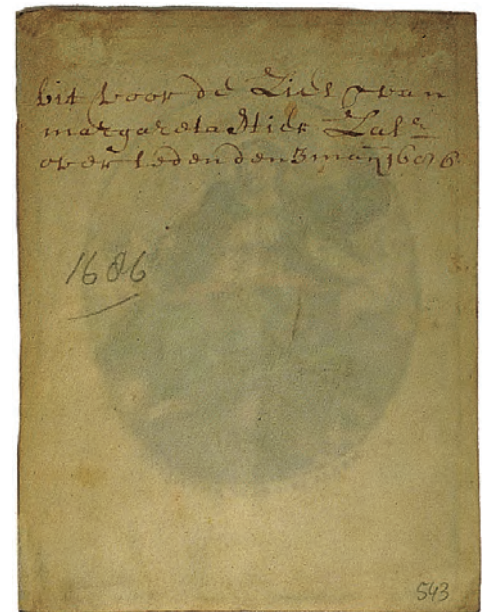 bit voor de Ziel van
margareta Stier Zalr
over leden den 3 maÿ 1686
1686
543